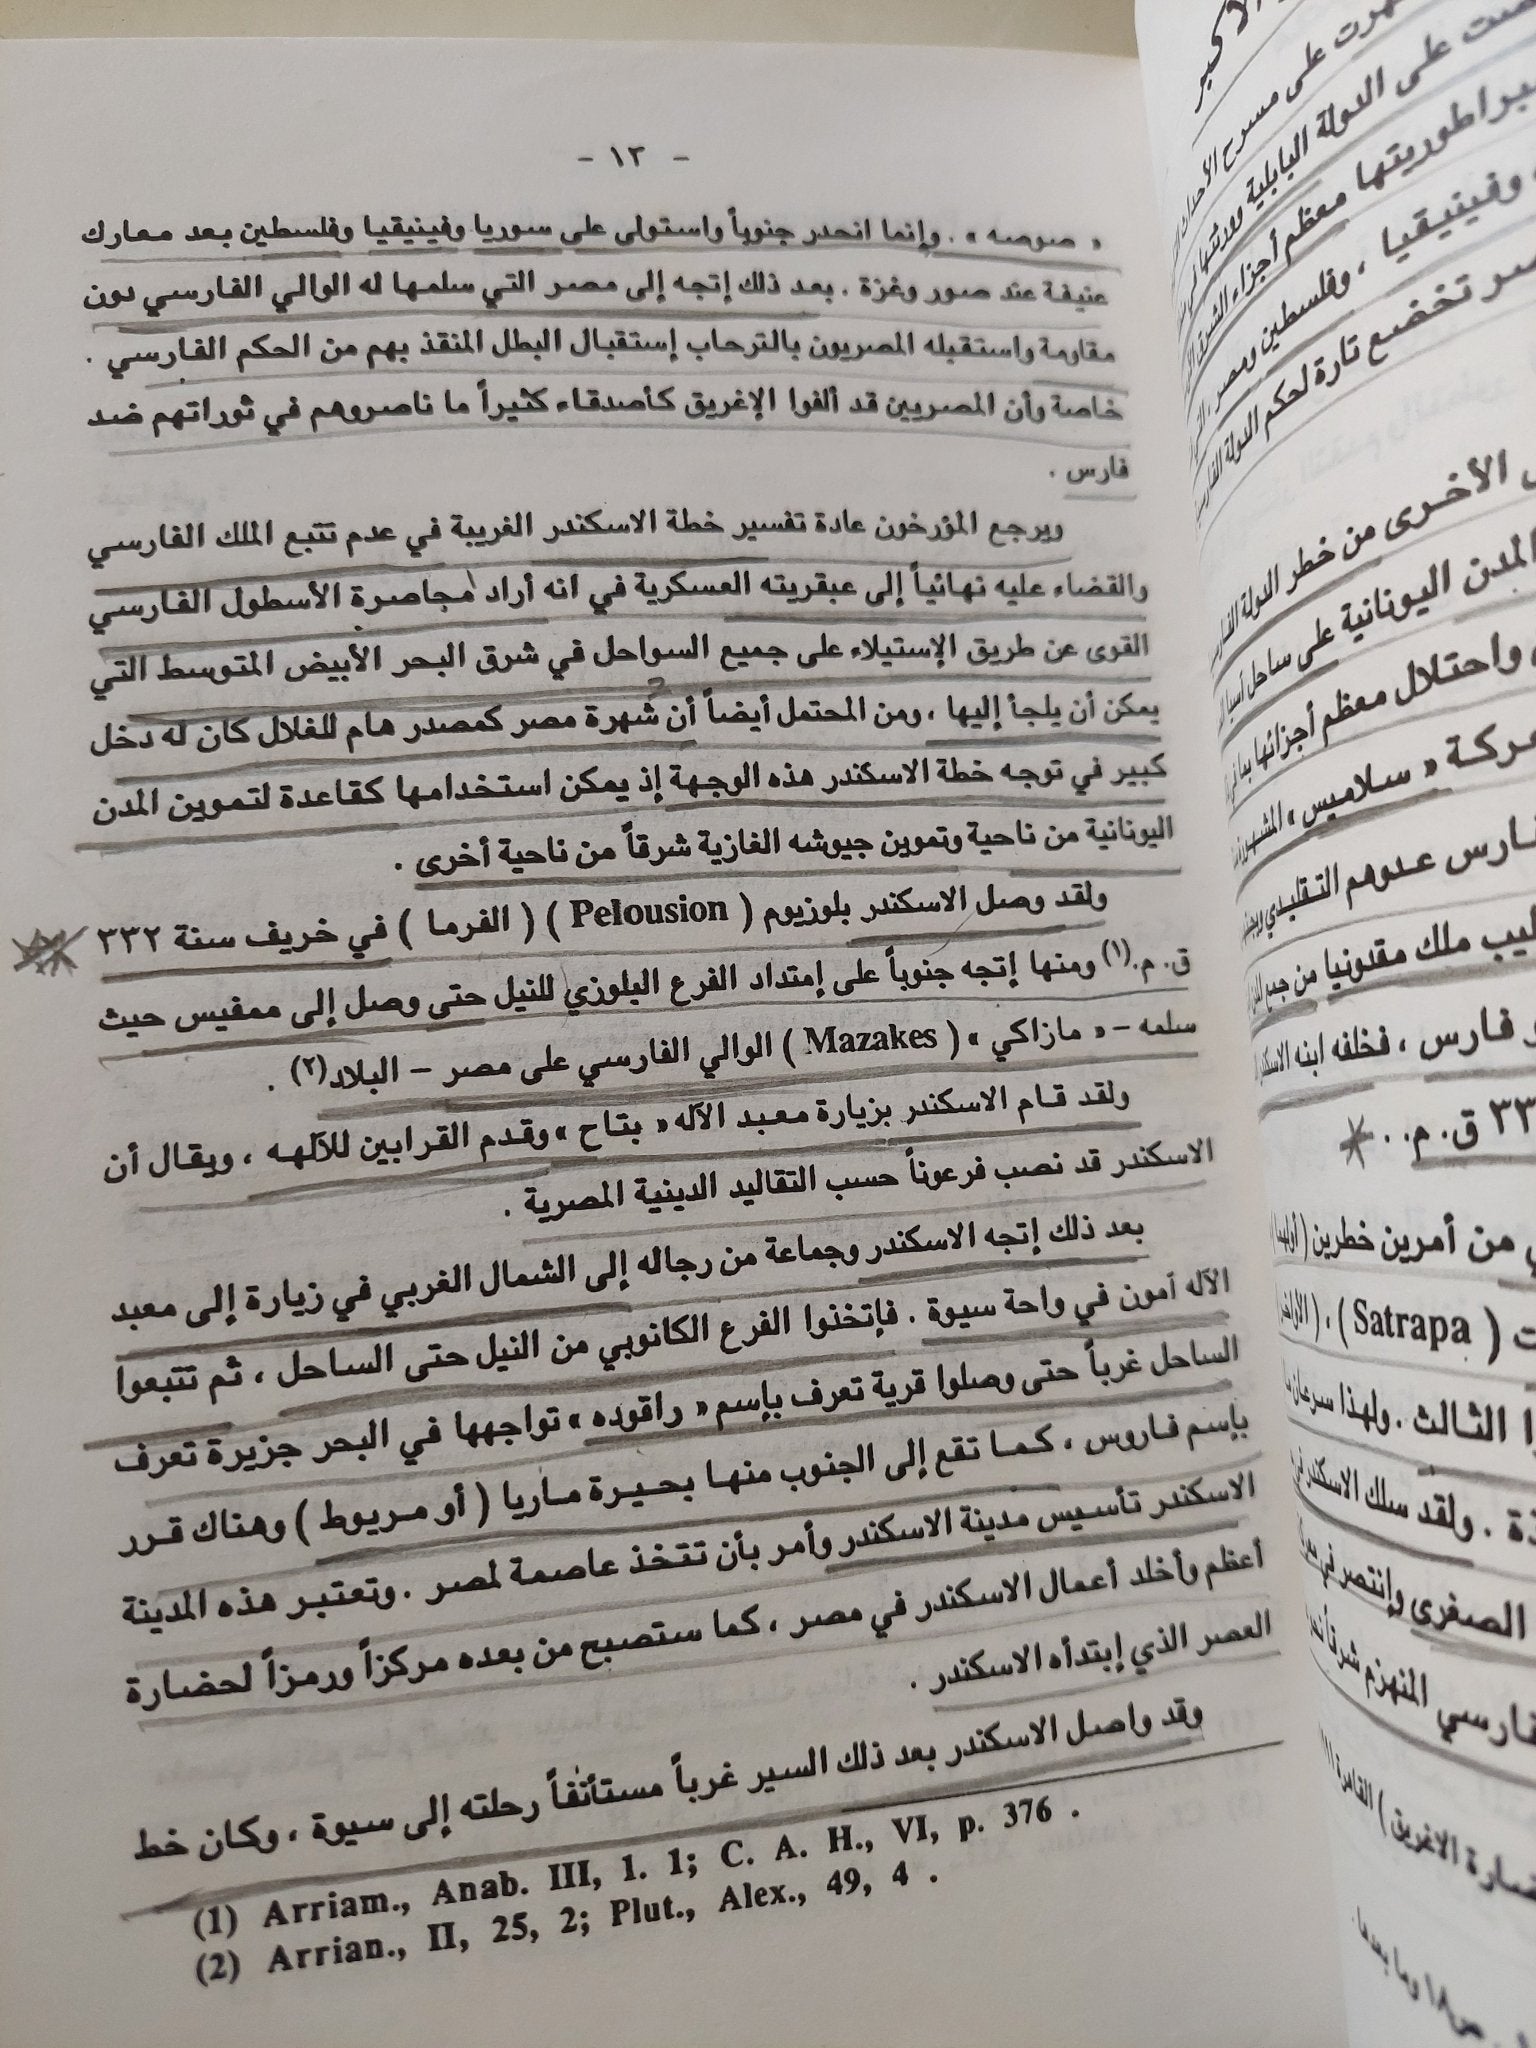 - ١٣ -
« صوصه » . وإنما انحدر جنوباً واستولى على سوريا وفينيقيا وفلسطين بعد معارك
عنيفة عند صور وغزة . بعد ذلك إتجه إلى مصر التي سلمها له الوالي الفارسي دون
مقاومة واستقبله المصريون بالترحاب إستقبال البطل المنقذ بهم من الحكم الفارسي .
خاصة وأن المصريين قد ألفوا الإغريق كأصدقاء كثيراً ما ناصروهم في ثوراتهم ضد
فارس .
ويرجع المؤرخون عادة تفسير خطة الاسكندر الغريبة في عدم تتبع الملك الفارسي
والقضاء عليه نهائياً إلى عبقريته العسكرية في انه أراد محاصرة الأسطول الفارسي
القوى عن طريق الإستيلاء على جميع السواحل في شرق البحر الأبيض المتوسط التي
يمكن أن يلجأ إليها ، ومن المحتمل أيضاً أن شهرة مصر كمصدر هام للغلال كان له دخل
كبير في توجه خطة الاسكندر هذه الوجهة إذ يمكن استخدامها كقاعدة لتموين المدن
اليونانية من ناحية وتموين جيوشه الغازية شرقاً من ناحية أخرى .
ولقد وصل الاسكندر بلوزيوم ( Pelousion ) ( الفرما ) في خريف سنة ٣٣٢
ق. م.(١) ومنها إتجه جنوباً على إمتداد الفرع البلوزي للنيل حتى وصل إلى ممفيس حيث
سلمه – « مازاكي » ( Mazakes ) الوالي الفارسي على مصر – البلاد(٢) .
ولقد قام الاسكندر بزيارة معبد الآله « بتاح » وقدم القرابين للآلهه ، ويقال أن
الاسكندر قد نصب فرعوناً حسب التقاليد الدينية المصرية .
بعد ذلك إتجه الاسكندر وجماعة من رجاله إلى الشمال الغربي في زيارة إلى معبد
الآله آمون في واحة سيوة . فإتخذوا الفرع الكانوبي من النيل حتى الساحل ، ثم تتبعوا
الساحل غرباً حتى وصلوا قرية تعرف بإسم « راقوده » تواجهها في البحر جزيرة تعرف
بإسم فاروس ، كما تقع إلى الجنوب منها بحيرة ماريا ( أو مريوط ) وهناك قرر
الاسكندر تأسيس مدينة الاسكندر وأمر بأن تتخذ عاصمة لمصر . وتعتبر هذه المدينة
أعظم وأخلد أعمال الاسكندر في مصر ، كما ستصبح من بعده مركزاً ورمزاً لحضارة
العصر الذي إبتدأه الاسكندر .
وقد واصل الاسكندر بعد ذلك السير غرباً مستأنفاً رحلته إلى سيوة ، وكان خط
(1) Arriam., Anab. III, 1. 1; C. A. H., VI, p. 376 .
(2) Arrian., II, 25, 2; Plut., Alex., 49, 4 .
على مسرح
على الدولة البابلية
معظم أجزاء
وفينيقيا ، وفلسطين ومصر
تخضع تارة لحكم الدولة
الأخرى من خطر الدولة
المدن اليونانية على ساحل آسيا
واحتلال معظم أجزائها
« سلاميس »
عدوهم التقليدي
ملك مقدونيا من جمع
فارس ، فخلفه ابنه
ق. م. .
من أمرين خطرين
( Satrapa ) ،
الثالث . ولهذا سرعان
. ولقد سلك الاسكندر
الصغرى وإنتصر في
المنهزم شرقاً
الاغريق ) القاهرة
وما بعدها .